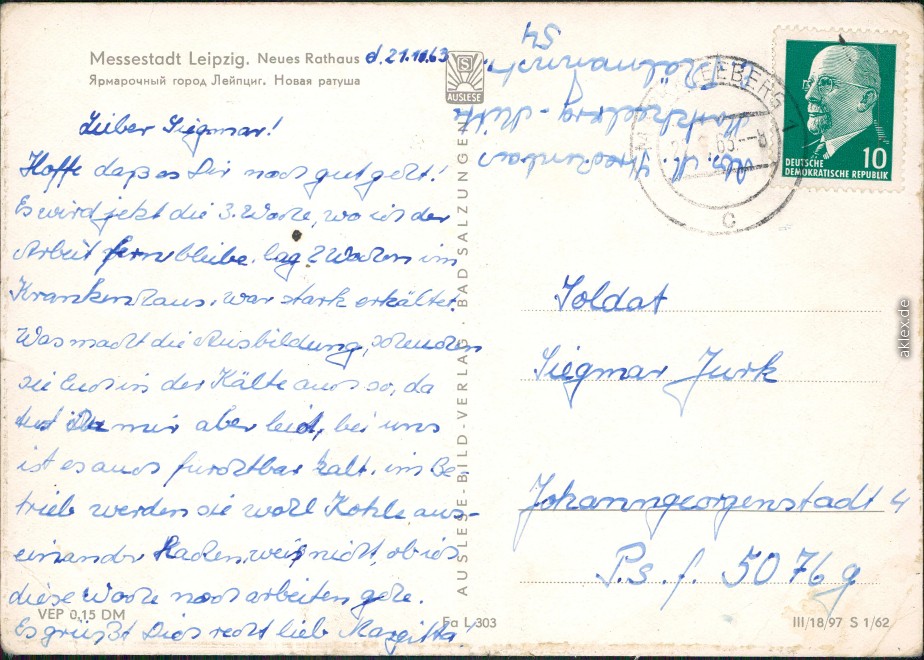 Messestadt Leipzig. Neues Rathaus d. 21.10.63
Ярмарочный город Лейпциг. Новая ратуша
Lieber Siegmar!
Hoffe daß es Dir noch gut geht!
Es wird jetzt die 3. Woche, wo ich der
Arbeit fernbleibe. lag 2 Wochen im
Krankenhaus. war stark erkältet.
Was macht die Ausbildung, scheuchen
sie Euch in der Kälte auch so, da
tust Du mir aber leid, bei uns
ist es auch furchtbar kalt. im Be-
trieb werden sie wohl Kohle aus-
einander hacken, weiß nicht, ob ich
diese Woche noch arbeiten gehe.
Es grüßt Dich recht lieb Margitta!
VEP 0,15 DM
Fa L 303
AUSLESE
AUSLESE-BILD-VERLAG · BAD SALZUNGEN
Abs. M.
Markkleeberg - Mitte
54
MARKKLEEBERG 1
63.--8
c
10
DEUTSCHE
DEMOKRATISCHE REPUBLIK
Soldat
Siegmar Jurk
Johanngeorgenstadt 4
Ps. f. 5076 g
III/18/97 S 1/62
aklex.de